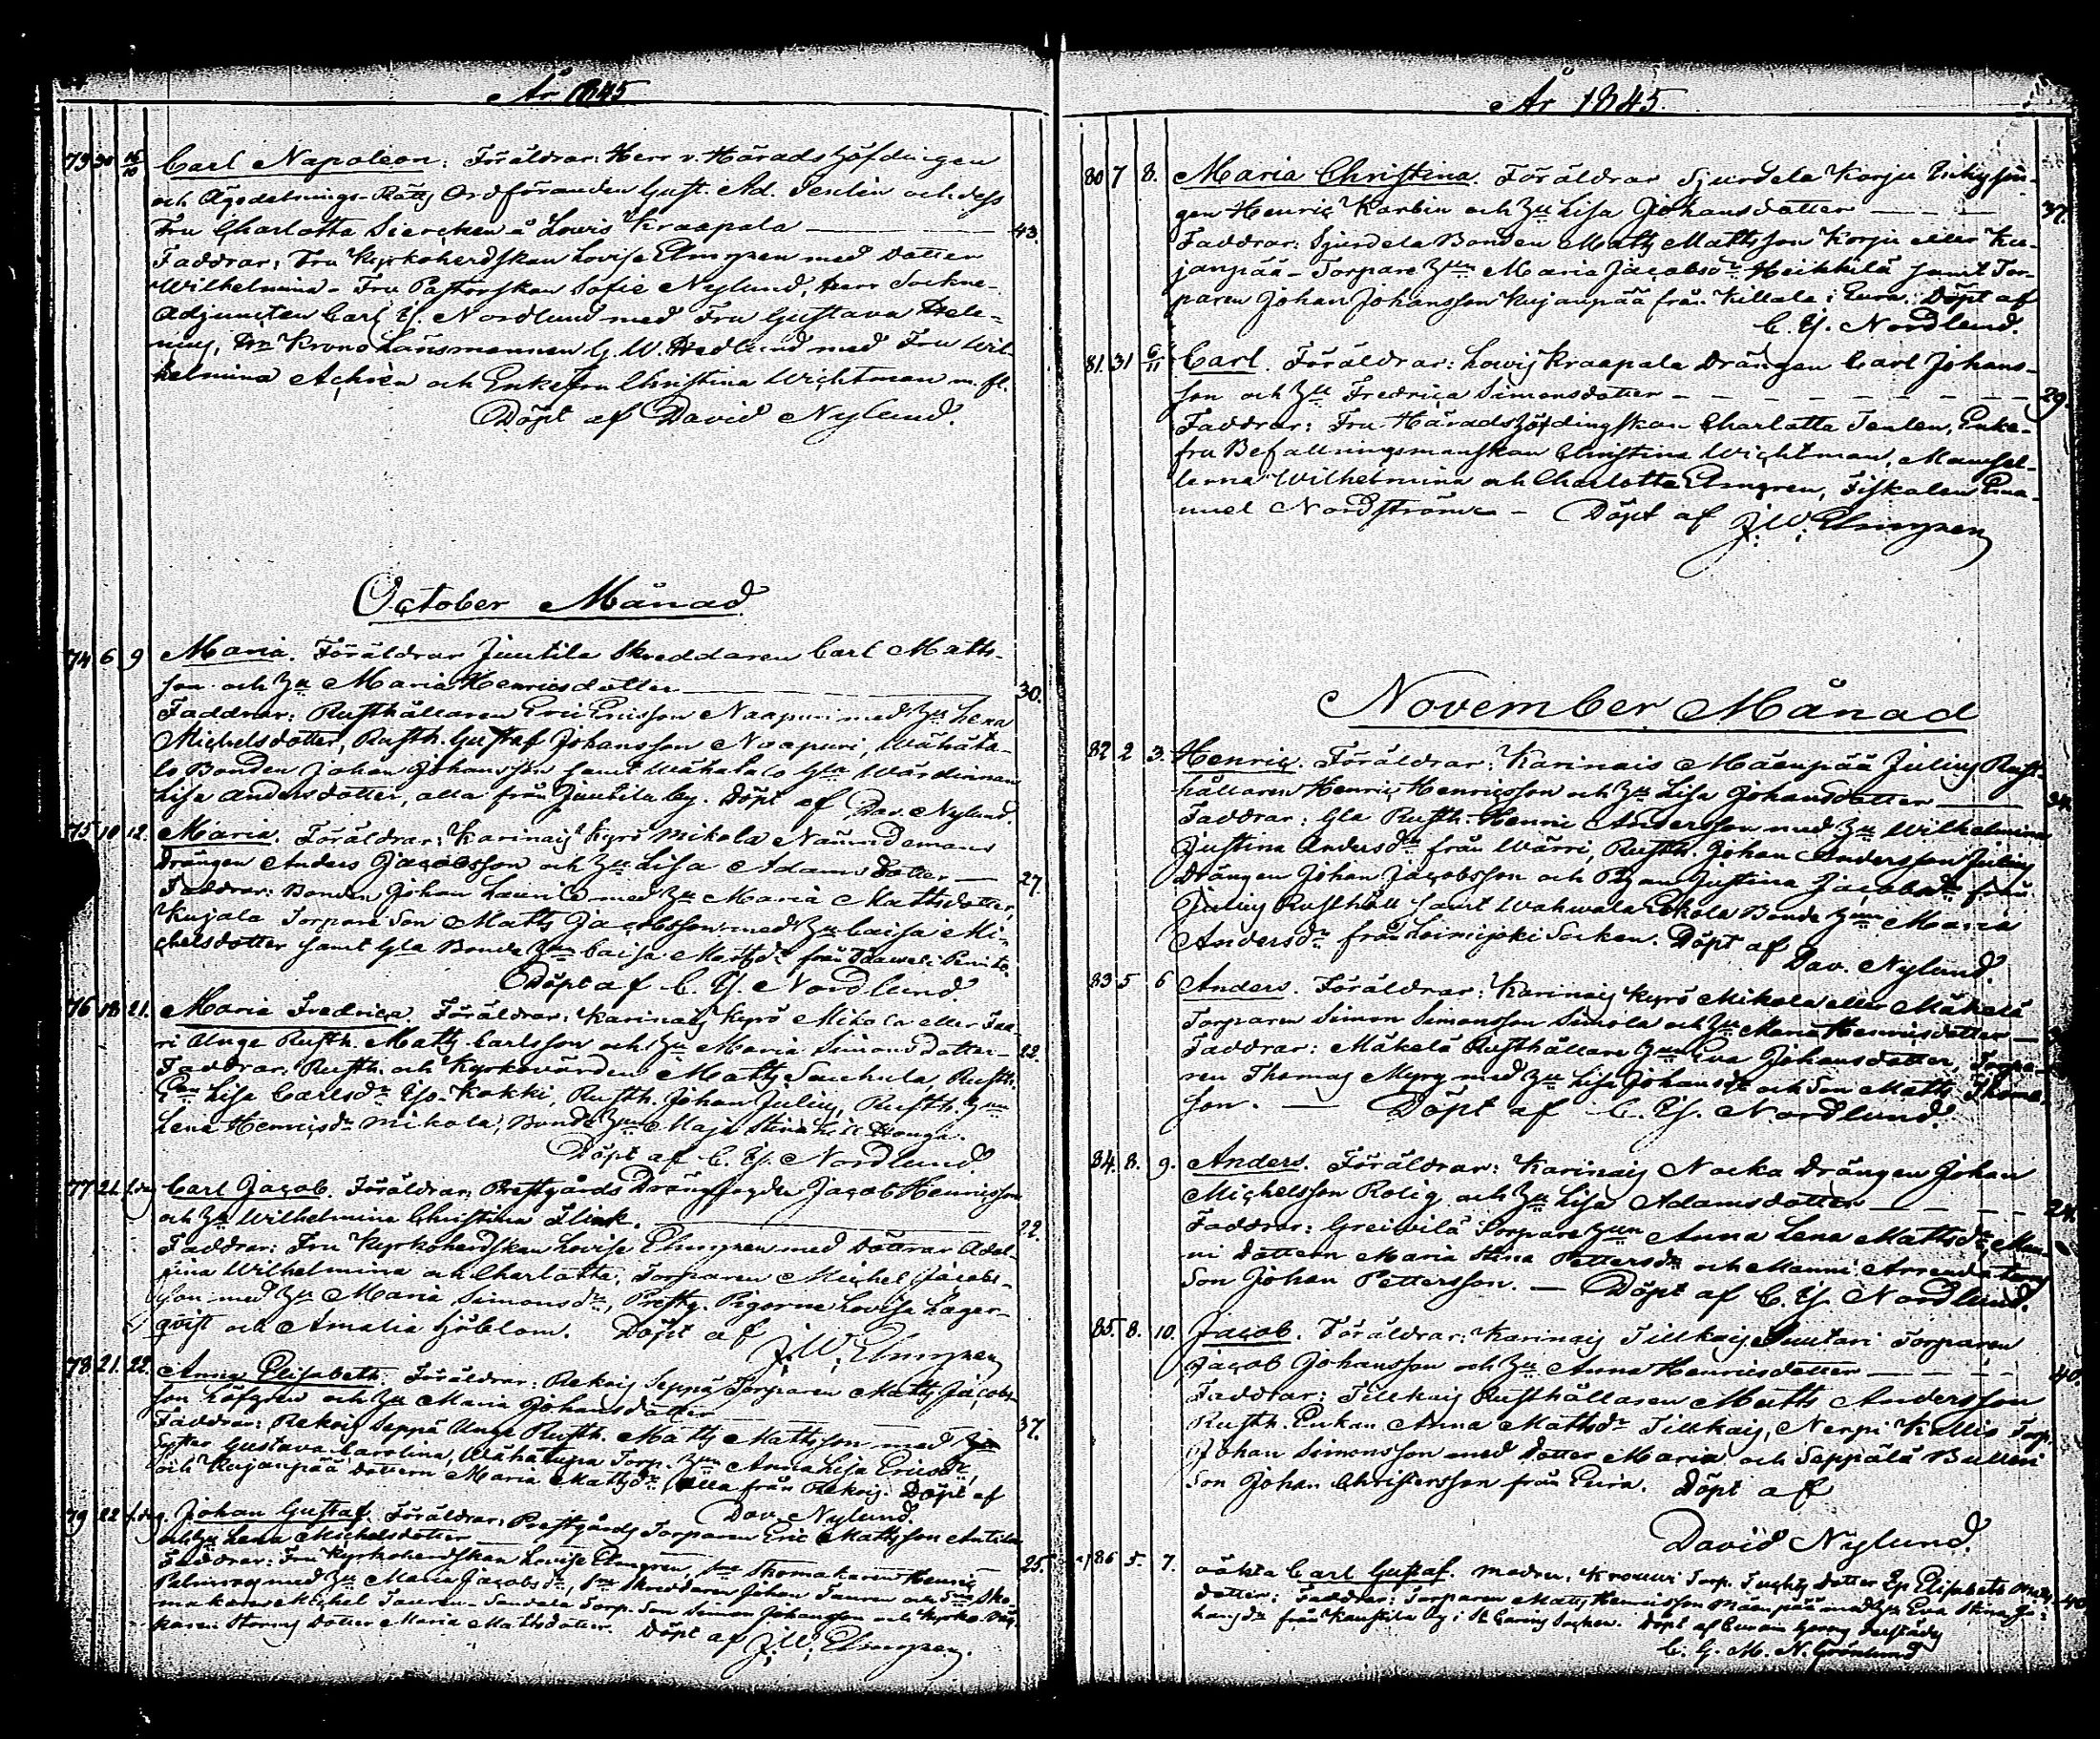 År 1845
73 30 16/10 Carl Napoleon. Föräldrar: Herr v. Häradshöfdingen
och Ägodelnings-Rätts Ordföranden Gust. Ad. Tenlén och dess
Fru Charlotta Siercken å Lowis Kraapala — 43.
Faddrar: Fru Kyrkoherdskan Lovisa Elmgren med dotter
Wilhelmina - Fru Pastorskan Sofie Nylund, Herr Sockne-
Adjuncten Carl Ej. Nordlund med Fru Gustava Hele-
nius, Krono Länsmannen G. W. Hedlund med Fru Wil-
helmina Achrén och Enkefru Christina Wichtman m. fl.
Döpt af David Nylund.
October Månad
74 6 9 Maria. Föräldrar Juutila Skreddaren Carl Matts-
son och Hu Maria Henricsdotter — 30.
Faddrar: Rusthållaren Eric Ericsson Naapuri med Hu Lena
Michelsdotter, Rusth. Gustaf Johansson Naapuri, Wähäta-
lo Bonden Johan Johansson samt Wähätalo Gla Wärdinnan
Lisa Andersdotter, alla från Juutila by. Döpt af Dav. Nylund.
75 10 12. Maria. Föräldrar: Karinais Kyrö Mikola Nämndemans
Drängen Anders Jacobsson och Hu Lisa Adams dotter — 27.
Faddrar: Bonden Johan Launis med Hu Maria Mattsdotter,
Kujala Torpare Son Matts Jacobsson med Hu Caisa Mi-
chelsdotter samt Gla Bonde Hun Caisa Mattsdr från
Döpt af C. Ej. Nordlund.
76 18 21. Maria Fredrica. Föräldrar: Karinais Kyrö Mikola eller
ri Unge Rusth. Matts Carlsson och Hu Maria Simonsdotter — 22.
Faddrar: Rusth. och Kyrkovärden Matts Sauhula, Rusth.
Lisa Carlsdr Yso-Kokki, Rusth. Johan Julius, Rusth. Hun
Lena Henricsdr Mikola, Bonde Hun Maja Stina
Döpt af C. Ej. Nordlund.
77 21 s.dag Carl Jacob. Föräldrar: Prestgårds Drängfogden Jacob Henricsson
och Hu Wilhelmina Christina Flink. — 22.
Faddrar: Fru Kyrkoherdskan Lovise Elmgren med döttrar Adol-
fina Wilhelmina och Charlotta, Torparen Michel Jacobs-
son med Hu Maria Simonsdr, Prestg. Pigorne Lovisa Lager-
qvist och Amalia Sjöblom. Döpt af
J. W. Elmgren
78 21. 22. Anna Elisabeth. Föräldrar: Rekois Seppä Torparen Matts Jacobs-
son Löfgren och Hu Maria Johansdotter — 37.
Faddrar: Rekois Seppä Unge Rusth. Matts Mattsson med
Syster Gustava Carolina, Wähätupa Torp. Hun Anna Lisa Ericsdr,
och Kujanpää dottern Maria Mattsdr, alla från Rekois. Döpt af
Dav. Nylund.
79 22 s.dag. Johan Gustaf. Föräldrar: Prestgårds Torparen Eric Mattsson Antila
och Hu Lena Michelsdotter — 25.
Faddrar: Fru Kyrkoherdskan Lovise Elmgren, Skomakaren Henric
Palmroos med Hu Maria Jacobsdr, Skreddaren Johan Tauren och Sko-
makaren Michel Tauren - Torp. Son Simon Johansson och Kyrko
Storms dotter Maria Mattsdotter. Döpt af J. W. Elmgren.
År 1845.
80 7 8. Maria Christina. Föräldrar Sjurdela Korju
gen Henric Karbin och Hu Lisa Johansdotter — 37.
Faddrar: Sjurdela Bonden Matts Mattsson Korju eller Ku-
janpää - Torpare Hun Maria Jacobsdr Heikkilä samt Tor-
paren Johan Johansson Kujanpää från Killala i Eura. Döpt af
C. Ej. Nordlund.
81. 31 6/11 Carl. Föräldrar: Lowis Kraapala Drängen Carl Johans-
son och Hu Fredrica Simonsdotter — 29.
Faddrar: Fru Häradshöfdingskan Charlotta Tenlen, Enke-
fru Befallningsmanskan Christina Wichtman, Mamsel-
lerna Wilhelmina och Charlotta Elmgren, Fiskalen Ema-
nuel Nordström - Döpt af J. W. Elmgren
November Månad
82 2 3. Henric. Föräldrar: Karinais Mäenpää Julius Rust-
hållaren Henric Henricsson och Hu Lisa Johansdotter —
Faddrar: Gla Rusth. Henric Andersson med Hu Wilhelmina
Justina Andersdr från Wärri, Rusth. Johan Andersson Julius
Drängen Johan Jacobsson och Pigan Justina Jacobsdr från
Julius Rusthåll samt Wahwala Eskola Bonde Hun Maria
Andersdr från Loimijoki Socken. Döpt af
Dav. Nylund
83 5 6 Anders. Föräldrar: Karinais Kyrö Mikola eller Mäkelä
Torparen Simon Simonsson Simola och Hu Maria Henricsdotter —
Faddrar: Mäkelä Rusthållare Hun Eva Johansdotter, Torpa-
ren Thomas Myry med Hu Lisa Johansdr och Son Matts Thoma-
son. — Döpt af C. Ej. Nordlund.
84. 8. 9. Anders. Föräldrar: Karinais Nocka Drängen Johan
Michelsson Rolig och Hu Lisa Adamsdotter — 24.
Faddrar: Greivilä Torpare Hun Anna Lena Mattsdr, Man-
ni dottern Maria Stina Pettersdr och Manni Arrendators
Son Johan Pettersson. — Döpt af C. Ej. Nordlund.
85. 8. 10. Jacob. Föräldrar: Karinais Tillkais Suutari Torparen
Jacob Johansson och Hu Anna Henricsdotter — 40.
Faddrar: Tillkais Rusthållaren Matts Andersson
Rusth. Enkan Anna Mattsdr Tillkais, Nerpi Kallio Torp.
Johan Simonsson med dotter Maria och Seppälä Bulleri
Son Johan Christersson från Eura. Döpt af
David Nylund.
86 5. 7. oäkta Carl Gustaf. modren: Krouwi Torp. dotter Elisabeth Matts
dotter: Faddrar: Torparen Matts Henricsson Mäenpää med Hu Eva Stina Jo- 40
hansdr från Kauskila by i St Carins Socken. Döpt af
C. G. M. N. Grönlund